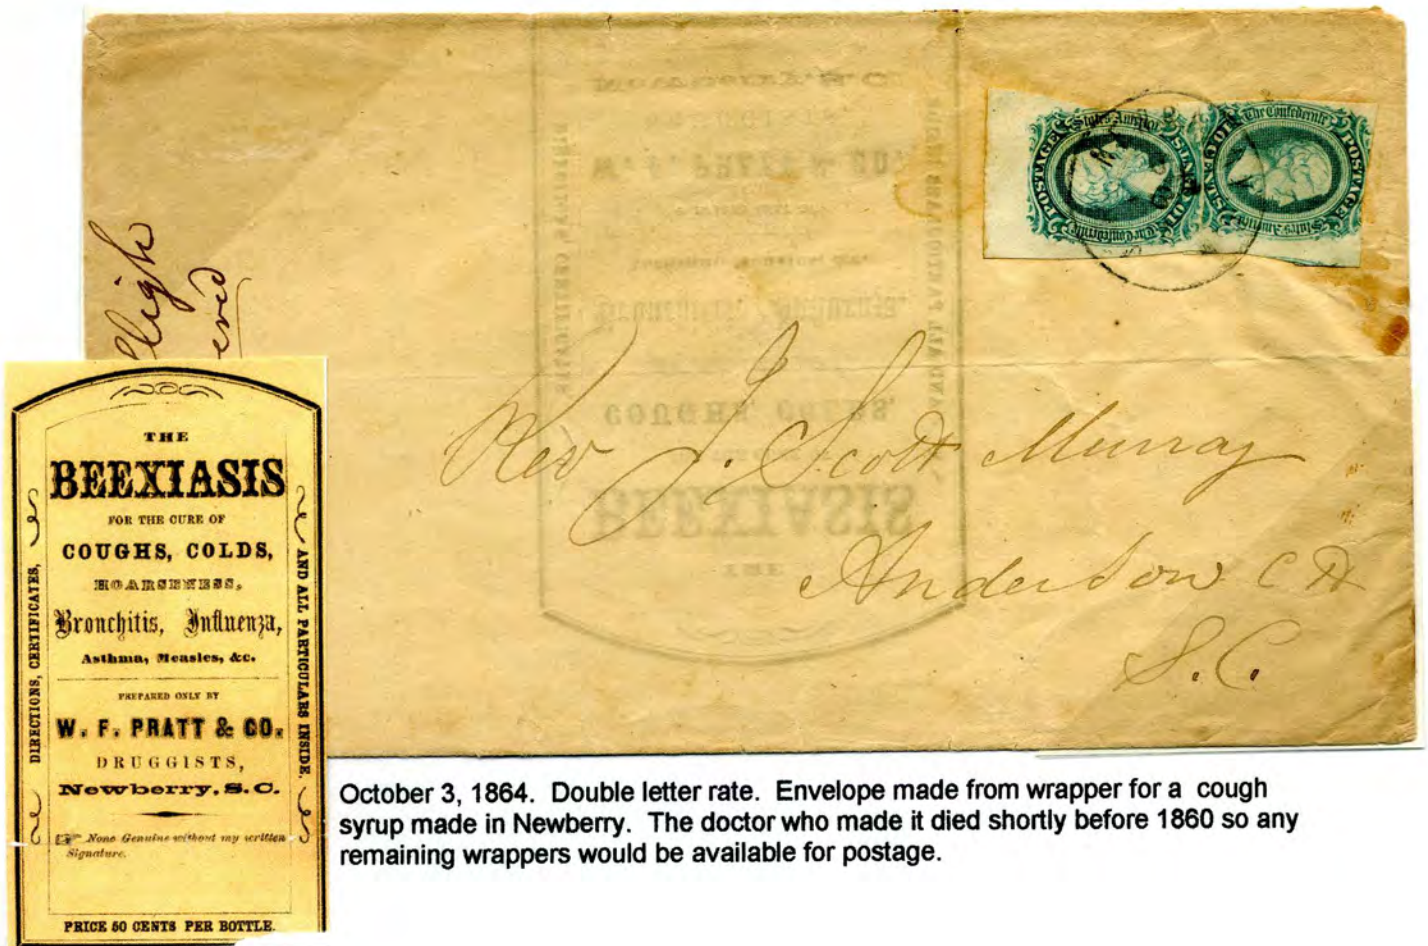 The Confederate
States America
POSTAGE
TEN CENTS
The Confederate
States America
POSTAGE
TEN CENTS
Rev J. Scott Murray
Anderson C H
S.C.
THE
BEEXIASIS
FOR THE CURE OF
COUGHS, COLDS,
HOARSENESS,
Bronchitis, Influenza,
Asthma, Measles, &c.
PREPARED ONLY BY
W. F. PRATT & CO.
DRUGGISTS,
Newberry, S. C.
None Genuine without my written
Signature.
PRICE 50 CENTS PER BOTTLE.
DIRECTIONS, CERTIFICATES,
AND ALL PARTICULARS INSIDE.
October 3, 1864. Double letter rate. Envelope made from wrapper for a cough
syrup made in Newberry. The doctor who made it died shortly before 1860 so any
remaining wrappers would be available for postage.